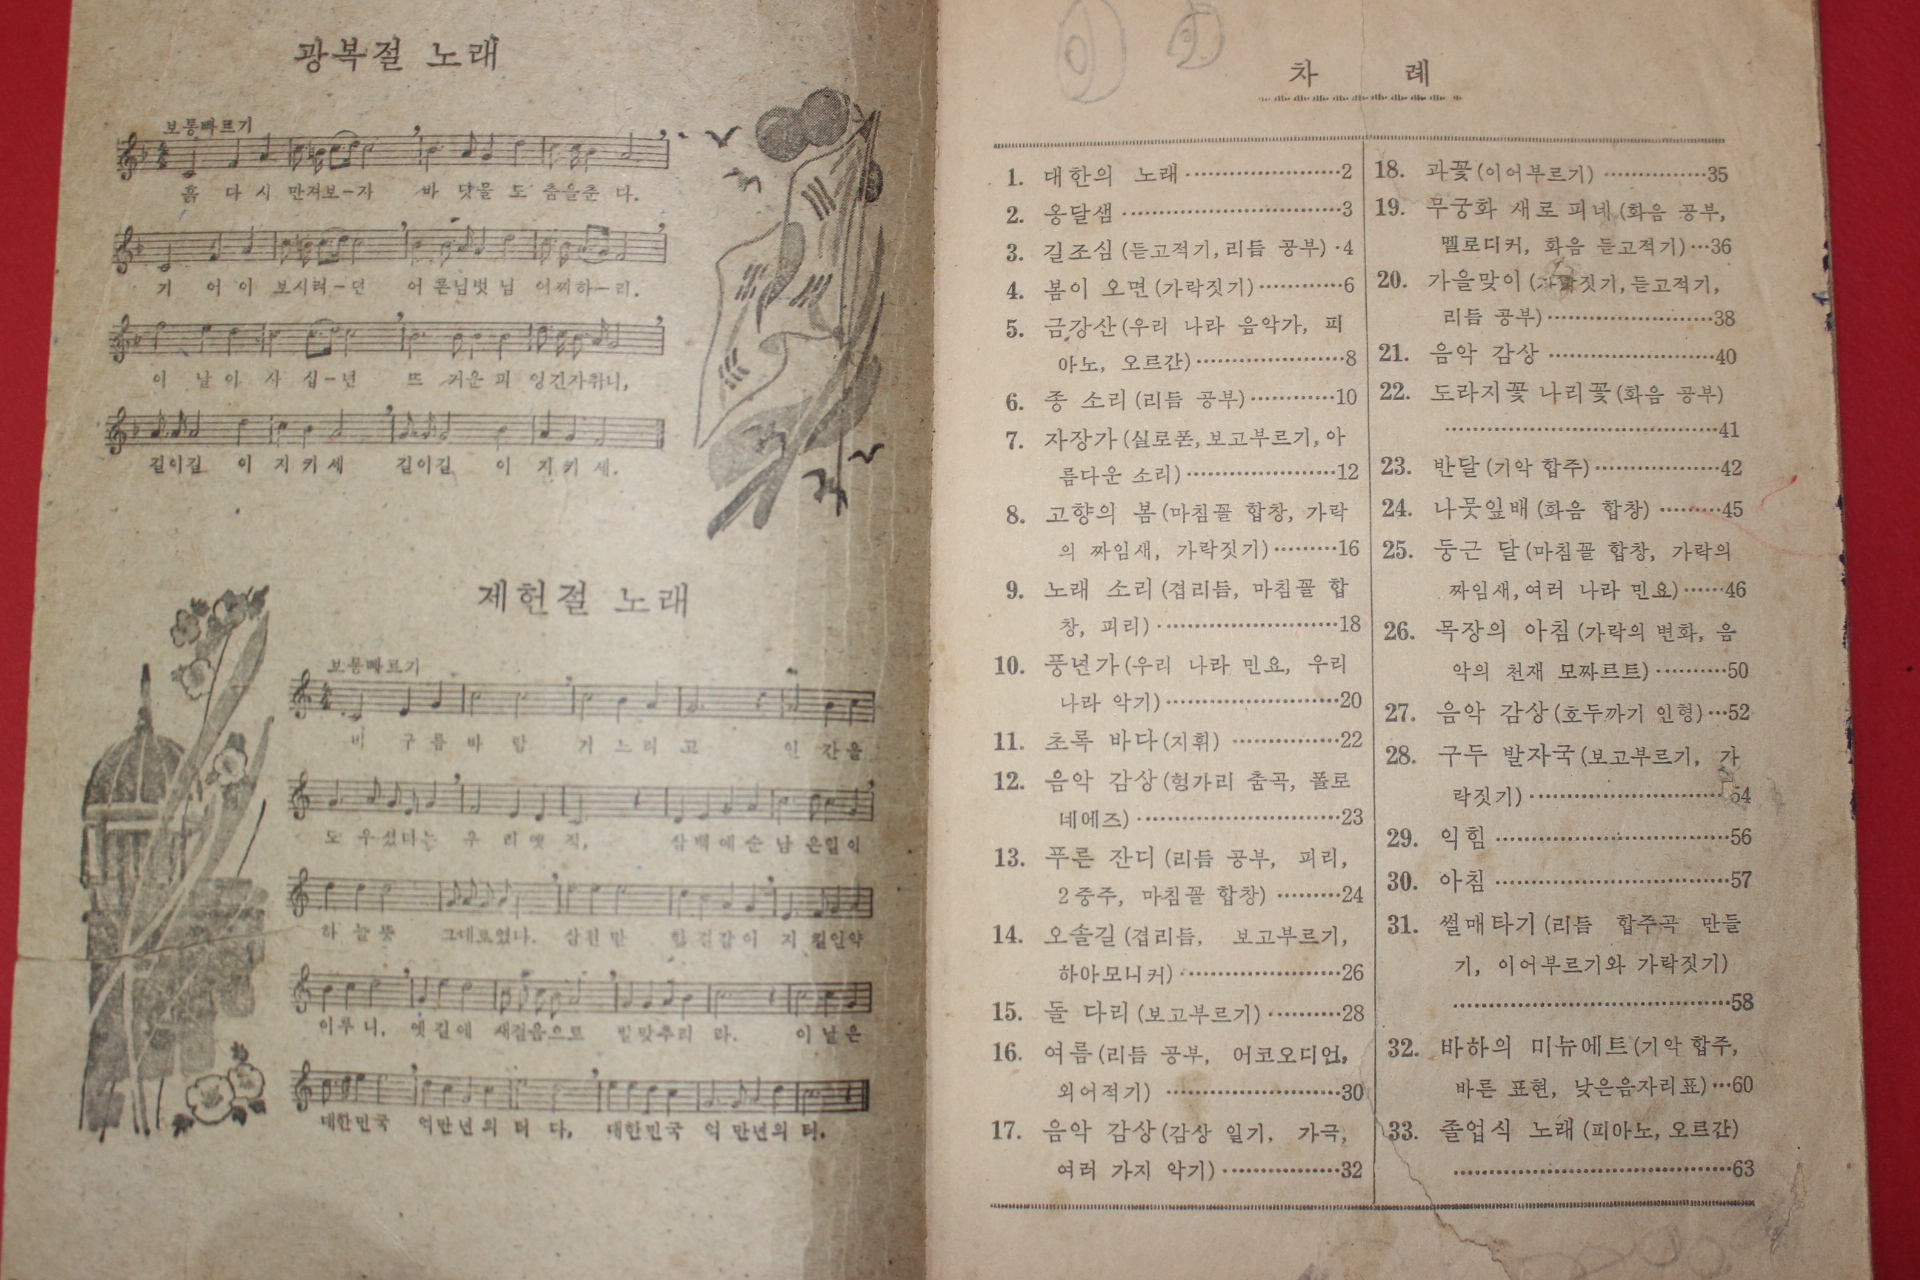 광복절 노래
보통빠르기
흙 다 시 만져보-자 바 닷물 도 춤을춘 다.
기 어 이 보시려-던 어 른님벗 님 어찌하-리.
이 날 이 사 십-년 뜨 거운 피 엉긴자취니,
길이길 이 지 키 세 길이길 이 지 키 세.
제헌절 노래
보통빠르기
비 구 름 바 람 거 느 리 고 인 간을
도 우셨다는 우 리 옛 적, 삼백 예 순 남 은일 이
하 늘 뜻 그대로였다. 삼천 만 한 결같 이 지 킬언약
이루 니, 옛길에 새걸음으로 발맞추리 라. 이 날 은
대한민국 억만년 의 터 다, 대한민국 억 만년의 터.
차 례
1. 대한의 노래 ⋯⋯⋯2
2. 옹달샘 ⋯⋯⋯3
3. 길조심 (듣고적기, 리듬 공부) ·4
4. 봄이 오면 (가락짓기) ⋯⋯⋯6
5. 금강산 (우리 나라 음악가, 피
아노, 오르간) ⋯⋯⋯8
6. 종 소리 (리듬 공부) ⋯⋯⋯10
7. 자장가 (실로폰, 보고부르기, 아
름다운 소리) ⋯⋯⋯12
8. 고향의 봄 (마침꼴 합창, 가락
의 짜임새, 가락짓기) ⋯⋯⋯16
9. 노래 소리 (겹리듬, 마침꼴 합
창, 피리) ⋯⋯⋯18
10. 풍년가 (우리 나라 민요, 우리
나라 악기) ⋯⋯⋯20
11. 초록 바다 (지휘) ⋯⋯⋯22
12. 음악 감상 (헝가리 춤곡, 폴로
네에즈) ⋯⋯⋯23
13. 푸른 잔디 (리듬 공부, 피리,
2중주, 마침꼴 합창) ⋯⋯⋯24
14. 오솔길 (겹리듬, 보고부르기,
하아모니커) ⋯⋯⋯26
15. 돌 다리 (보고부르기) ⋯⋯⋯28
16. 여름 (리듬 공부, 어코오디언,
외어적기) ⋯⋯⋯30
17. 음악 감상 (감상 일기, 가극,
여러 가지 악기) ⋯⋯⋯32
18. 과꽃 (이어부르기) ⋯⋯⋯35
19. 무궁화 새로 피네 (화음 공부,
멜로디커, 화음 듣고적기) ⋯36
20. 가을맞이 (가락짓기, 듣고적기,
리듬 공부) ⋯⋯⋯38
21. 음악 감상 ⋯⋯⋯40
22. 도라지꽃 나리꽃 (화음 공부)
⋯⋯⋯41
23. 반달 (기악 합주) ⋯⋯⋯42
24. 나뭇잎배 (화음 합창) ⋯⋯⋯45
25. 둥근 달 (마침꼴 합창, 가락의
짜임새, 여러 나라 민요) ⋯⋯46
26. 목장의 아침 (가락의 변화, 음
악의 천재 모짜르트) ⋯⋯⋯50
27. 음악 감상 (호두까기 인형) ⋯52
28. 구두 발자국 (보고부르기, 가
락짓기) ⋯⋯⋯54
29. 익힘 ⋯⋯⋯56
30. 아침 ⋯⋯⋯57
31. 썰매타기 (리듬 합주곡 만들
기, 이어부르기와 가락짓기)
⋯⋯⋯58
32. 바하의 미뉴에트 (기악 합주,
바른 표현, 낮은음자리표) ⋯60
33. 졸업식 노래 (피아노, 오르간)
⋯⋯⋯63